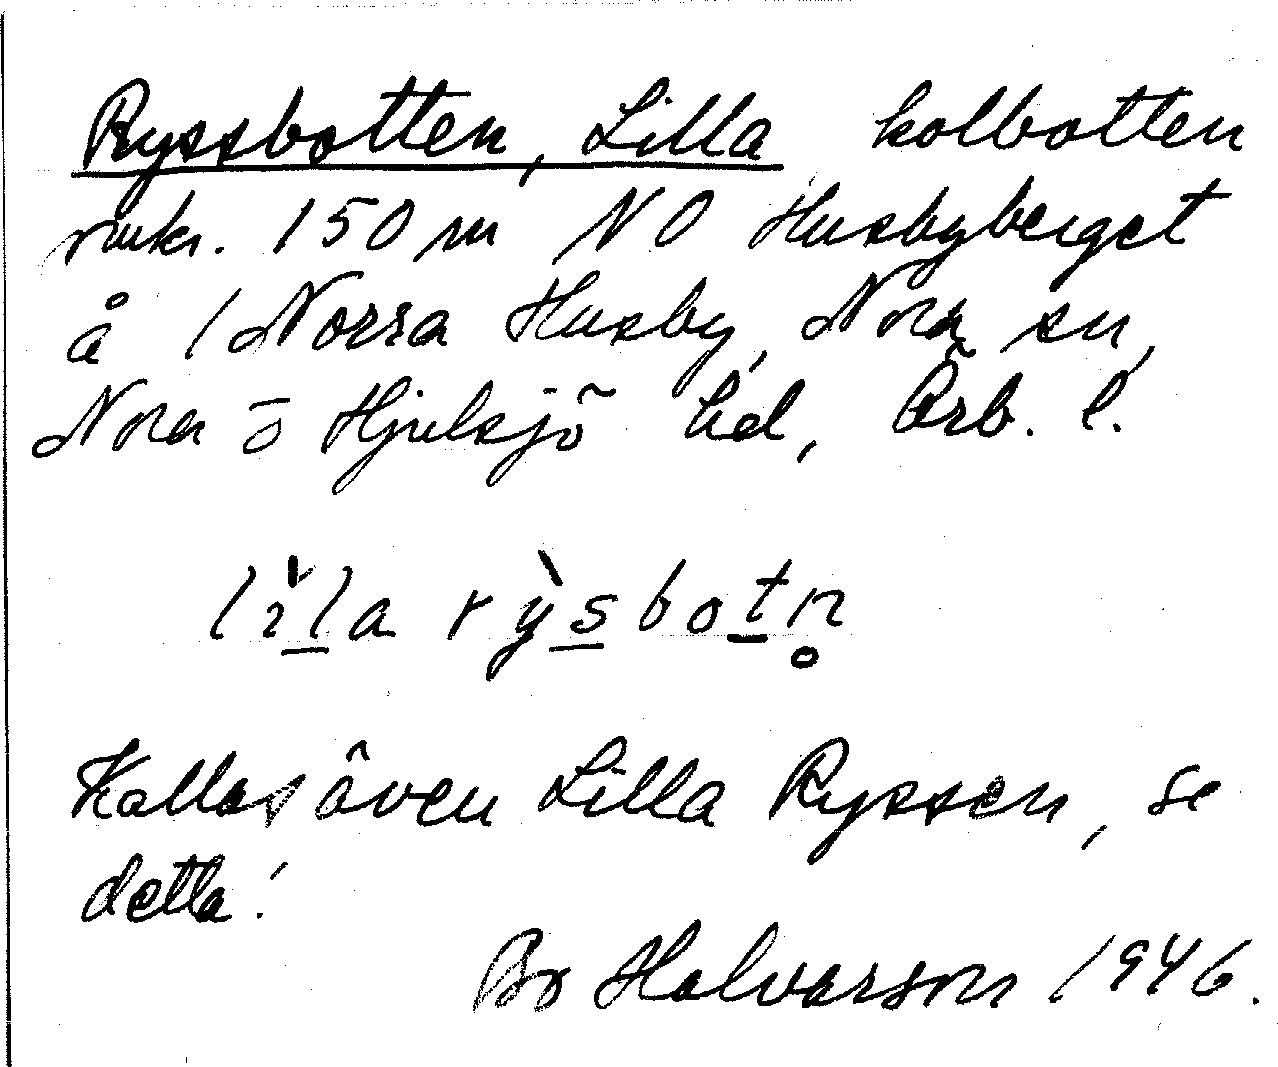 Ryssbotten, Lilla kolbotten
omkr. 150 m NO Husbyberget
å 1 Norra Husby, Nora sn,
Nora o Hjulsjö hd, Örb. l.
lìla rỳsbotn̥
Kallas även Lilla Ryssen, se
detta!
Bo Halvarson 1946.